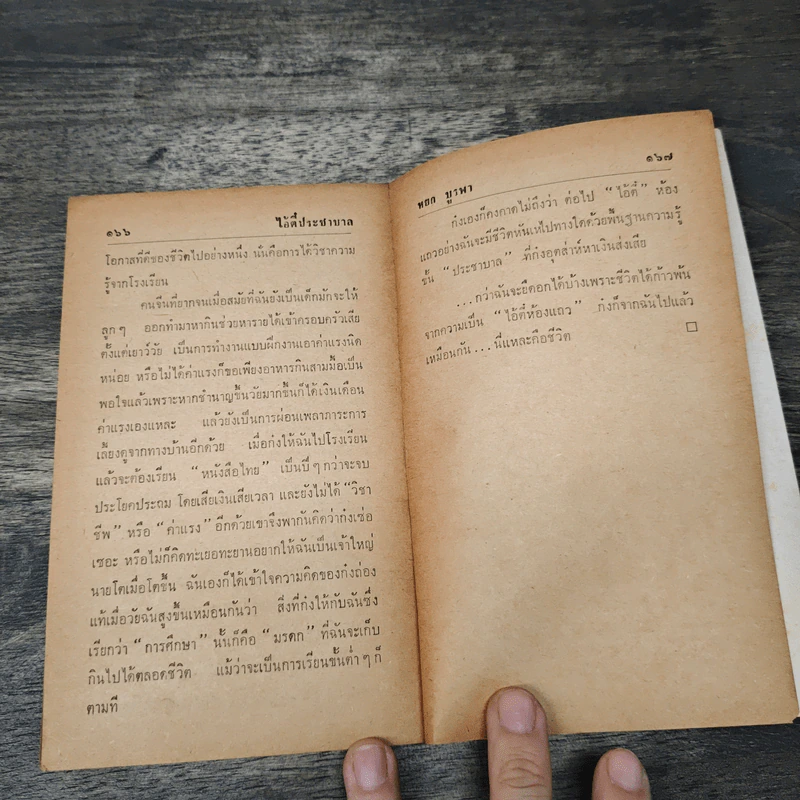 ๑๖๖ ไอ้ตี๋ประชาบาล
โอกาสที่ดีของชีวิตไปอย่างหนึ่ง นั่นคือการได้วิชาความ
รู้จากโรงเรียน
คนจีนที่ยากจนเมื่อสมัยที่ฉันยังเป็นเด็กมักจะให้
ลูก ๆ ออกทำมาหากินช่วยหารายได้เข้าครอบครัวเสีย
ตั้งแต่เยาว์วัย เป็นการทำงานแบบฝึกงานเอาค่าแรงนิด
หน่อย หรือไม่ได้ค่าแรงก็ขอเพียงอาหารกินสามมื้อเป็น
พอใจแล้วเพราะหากชำนาญขึ้นวัยมากขึ้นก็ได้เงินเดือน
ค่าแรงเองแหละ แล้วยังเป็นการผ่อนเพลาภาระการ
เลี้ยงดูจากทางบ้านอีกด้วย เมื่อก๋งให้ฉันไปโรงเรียน
แล้วจะต้องเรียน “หนังสือไทย” เป็นปี ๆ กว่าจะจบ
ประโยคประถม โดยเสียเงินเสียเวลา และยังไม่ได้ “วิชา
ชีพ” หรือ “ค่าแรง” อีกด้วยเขาจึงพากันคิดว่าก๋งเซ่อ
เซอะ หรือไม่ก็คิดทะเยอทะยานอยากให้ฉันเป็นเจ้าใหญ่
นายโตเมื่อโตขึ้น ฉันเองก็ได้เข้าใจความคิดของก๋งถ่อง
แท้เมื่อวัยฉันสูงขึ้นเหมือนกันว่า สิ่งที่ก๋งให้กับฉันซึ่ง
เรียกว่า “การศึกษา” นั้นก็คือ “มรดก” ที่ฉันจะเก็บ
กินไปได้ตลอดชีวิต แม้ว่าจะเป็นการเรียนขั้นต่ำ ๆ ก็
ตามที
หยก บูรพา ๑๖๗
ก๋งเองก็คงคาดไม่ถึงว่า ต่อไป “ไอ้ตี๋” ห้อง
แถวอย่างฉันจะมีชีวิตหันเหไปทางใดด้วยพื้นฐานความรู้
ชั้น “ประชาบาล” ที่ก๋งอุตส่าห์หาเงินส่งเสีย
...กว่าฉันจะยืดอกได้บ้างเพราะชีวิตได้ก้าวพ้น
จากความเป็น “ไอ้ตี๋ห้องแถว” ก๋งก็จากฉันไปแล้ว
เหมือนกัน...นี่แหละคือชีวิต □